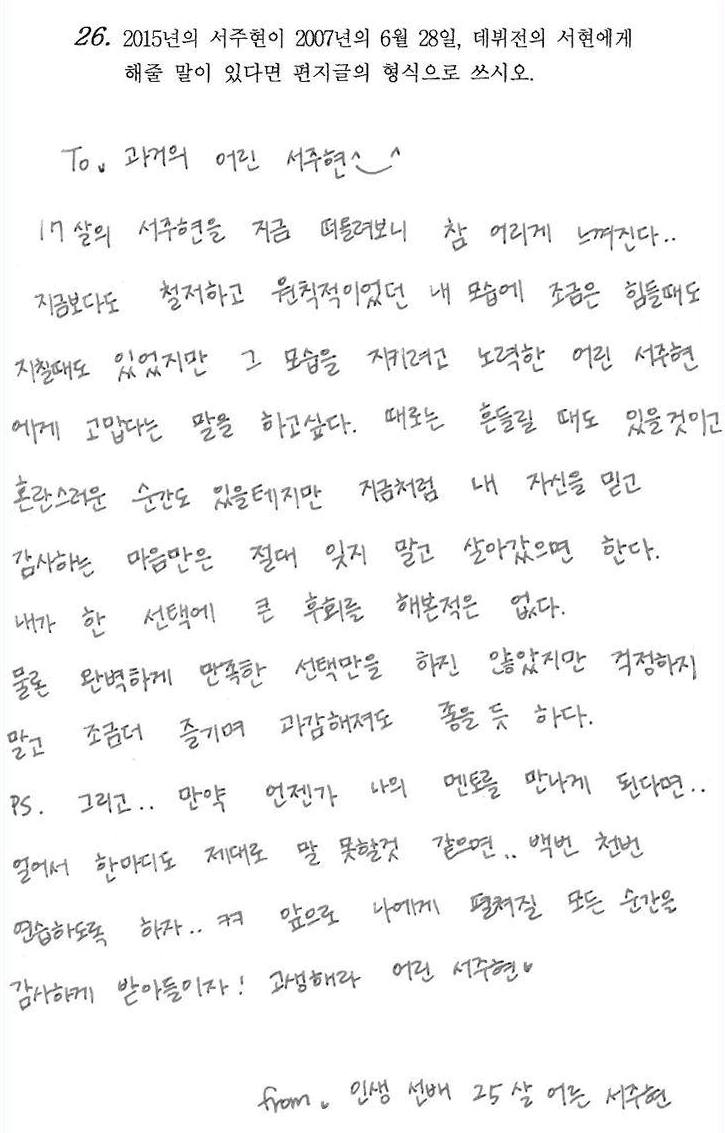 26. 2015년의 서주현이 2007년의 6월 28일, 데뷔전의 서현에게
해줄 말이 있다면 편지글의 형식으로 쓰시오.
To. 과거의 어린 서주현^‿^
17살의 서주현을 지금 떠올려보니 참 어리게 느껴진다..
지금보다도 철저하고 원칙적이었던 내 모습에 조금은 힘들때도
지칠때도 있었지만 그 모습을 지키려고 노력한 어린 서주현
에게 고맙다는 말을 하고싶다. 때로는 흔들릴 때도 있을것이고
혼란스러운 순간도 있을테지만 지금처럼 내 자신을 믿고
감사하는 마음만은 절대 잊지 말고 살아갔으면 한다.
내가 한 선택에 큰 후회를 해본적은 없다.
물론 완벽하게 만족한 선택만을 하진 않았지만 걱정하지
말고 조금더 즐기며 과감해져도 좋을 듯 하다.
PS. 그리고.. 만약 언젠가 나의 멘토를 만나게 된다면..
얼어서 한마디도 제대로 말 못할것 같으면.. 백번 천번
연습하도록 하자.. ㅋㅋ 앞으로 나에게 펼쳐질 모든 순간을
감사하게 받아들이자! 고생해라 어린 서주현♥
from. 인생 선배 25살 어른 서주현